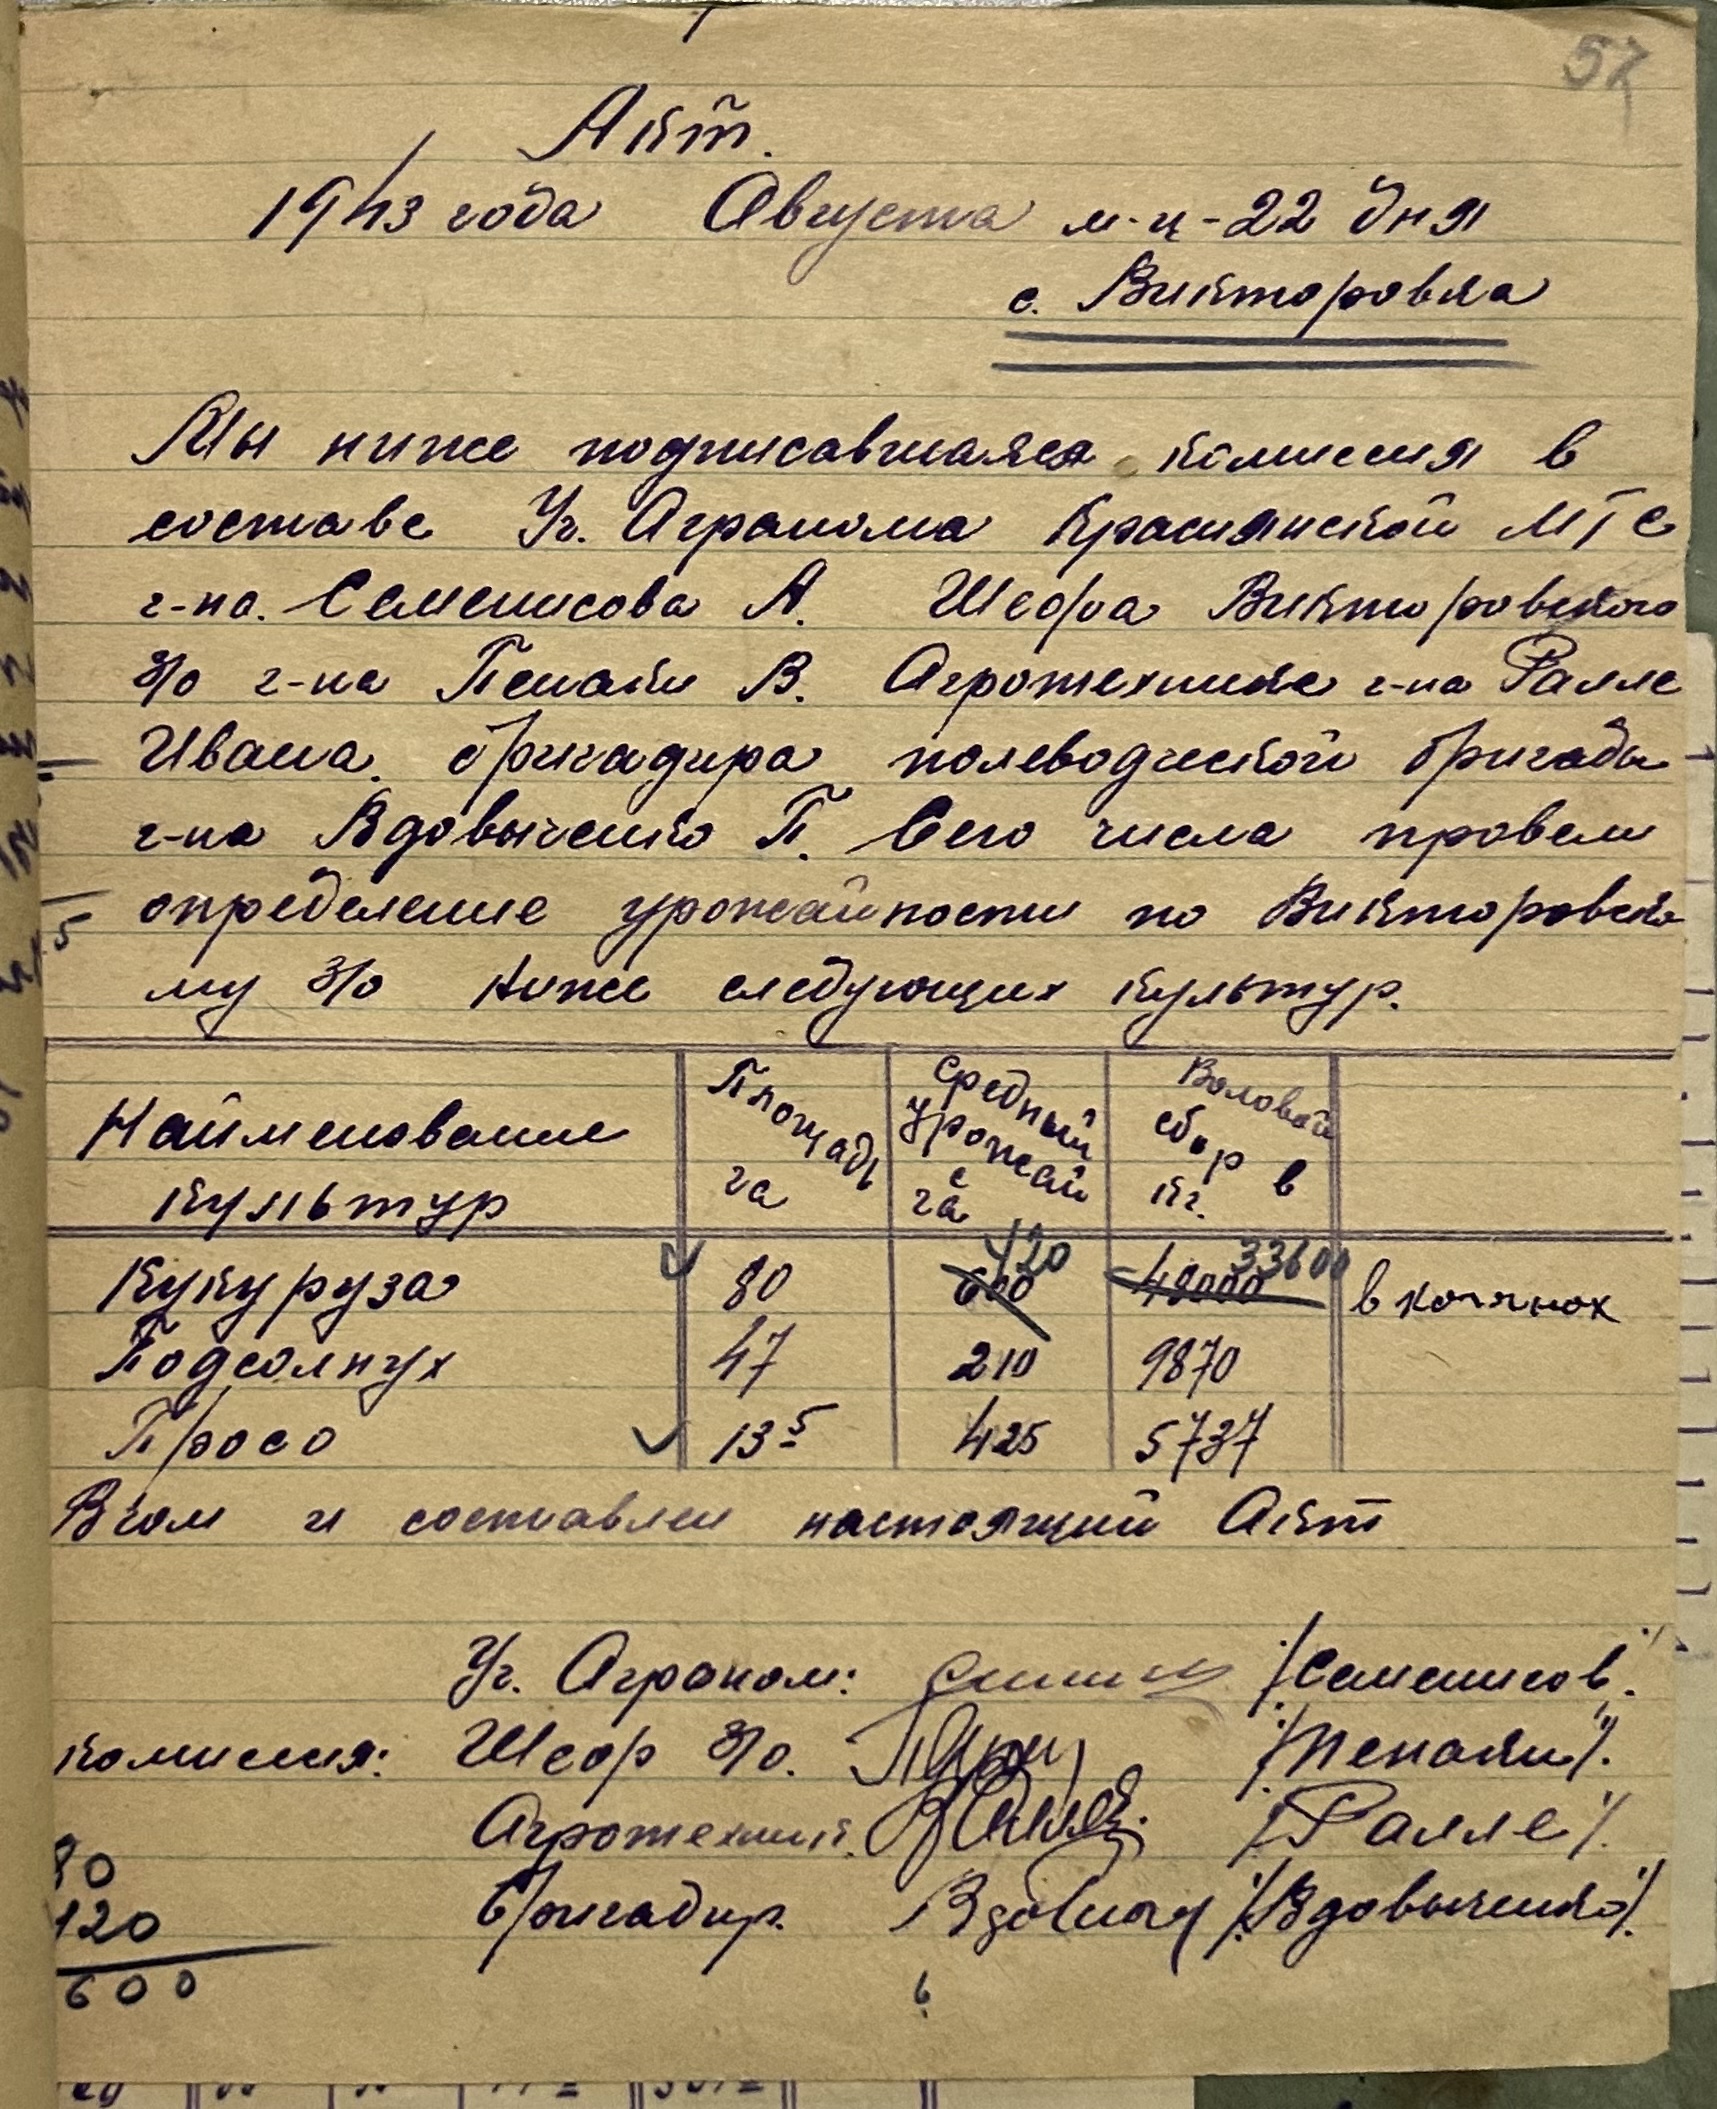 57
Акт.
1943 года Августа м-ц-22 дня
с. Викторовка
Мы ниже подписавшаяся комиссия в
составе Уч. Агронома Краснянской МТС
г-на. Семенисова А. Шефа Викторовского
З/о г-на Пенаки В. Агротехника г-на Ралле
Ивана. бригадира полеводческой бригады
г-на Вдовыченко П. Сего числа провели
определение урожайности по Викторовско
му З/о ниже следующих культур.
Найменование культур Площадь га Средный урожай с га Валовой сбор в кг.
Кукуруза 80 600 420 48000 33600 в кочанах
Подсолнух 47 210 9870
Просо 13 5 425 5737
Вчом и составлен настоящий Акт
Уч. Агроном: /Семенисов/.
комиссия: Шеф З/о. /Пенаки/.
Агротехник. /Ралле/.
бригадир. /Вдовыченко/.
80
420
600